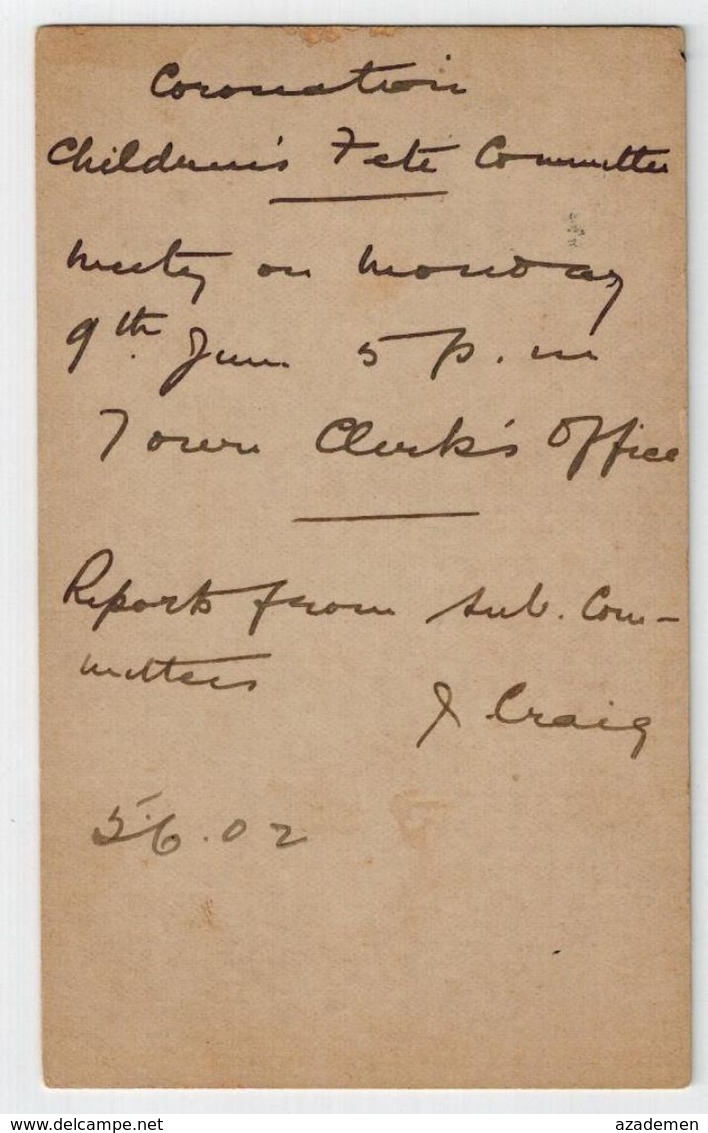 Coronation
Children's Fete Committee
Meeting on Monday
9th. June 5 p.m
Town Clerk's Office
Reports from Sub. Com-
mittees
J Craig
5.6.02
delcampe.net
azademen